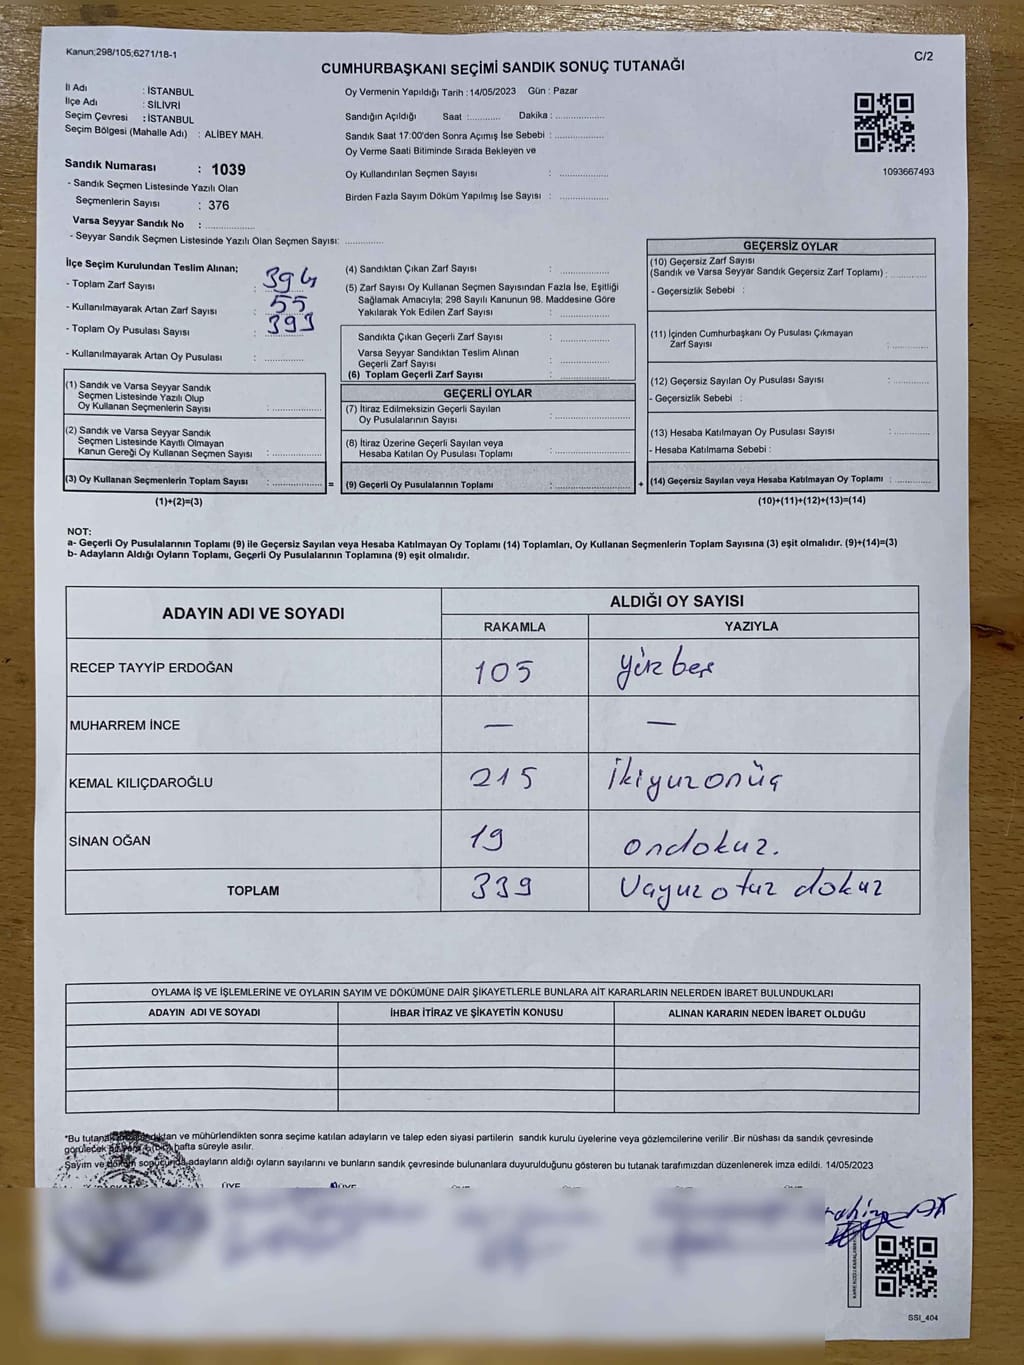 Kanun;298/105;6271/18-1
C/2
CUMHURBAŞKANI SEÇİMİ SANDIK SONUÇ TUTANAĞI
İl Adı : İSTANBUL
İlçe Adı : SİLİVRİ
Seçim Çevresi : İSTANBUL
Seçim Bölgesi (Mahalle Adı) : ALİBEY MAH.
Sandık Numarası : 1039
- Sandık Seçmen Listesinde Yazılı Olan
Seçmenlerin Sayısı : 376
Varsa Seyyar Sandık No : ..............
- Seyyar Sandık Seçmen Listesinde Yazılı Olan Seçmen Sayısı: ............
Oy Vermenin Yapıldığı Tarih : 14/05/2023 Gün : Pazar
Sandığın Açıldığı Saat :.......... Dakika : ................
Sandık Saat 17:00'den Sonra Açımış İse Sebebi : ................
Oy Verme Saati Bitiminde Sırada Bekleyen ve
Oy Kullandırılan Seçmen Sayısı : ................
Birden Fazla Sayım Döküm Yapılmış İse Sayısı : ................
1093667493
İlçe Seçim Kurulundan Teslim Alınan;
- Toplam Zarf Sayısı : 394
- Kullanılmayarak Artan Zarf Sayısı : 55
- Toplam Oy Pusulası Sayısı : 393
- Kullanılmayarak Artan Oy Pusulası : ............
(1) Sandık ve Varsa Seyyar Sandık
Seçmen Listesinde Yazılı Olup
Oy Kullanan Seçmenlerin Sayısı : ................
(2) Sandık ve Varsa Seyyar Sandık
Seçmen Listesinde Kayıtlı Olmayan
Kanun Gereği Oy Kullanan Seçmen Sayısı : ................
(3) Oy Kullanan Seçmenlerin Toplam Sayısı : ................ =
(1)+(2)=(3)
(4) Sandıktan Çıkan Zarf Sayısı : ................
(5) Zarf Sayısı Oy Kullanan Seçmen Sayısından Fazla İse, Eşitliği
Sağlamak Amacıyla; 298 Sayılı Kanunun 98. Maddesine Göre
Yakılarak Yok Edilen Zarf Sayısı : ................
Sandıkta Çıkan Geçerli Zarf Sayısı : ................
Varsa Seyyar Sandıktan Teslim Alınan
Geçerli Zarf Sayısı : ................
(6) Toplam Geçerli Zarf Sayısı : ................
GEÇERLİ OYLAR
(7) İtiraz Edilmeksizin Geçerli Sayılan
Oy Pusulalarının Sayısı : ................
(8) İtiraz Üzerine Geçerli Sayılan veya
Hesaba Katılan Oy Pusulası Toplamı : ................
(9) Geçerli Oy Pusulalarının Toplamı : ................ +
GEÇERSİZ OYLAR
(10) Geçersiz Zarf Sayısı
(Sandık ve Varsa Seyyar Sandık Geçersiz Zarf Toplamı) : ............
- Geçersizlik Sebebi :
(11) İçinden Cumhurbaşkanı Oy Pusulası Çıkmayan
Zarf Sayısı : ............
(12) Geçersiz Sayılan Oy Pusulası Sayısı : ............
- Geçersizlik Sebebi :
(13) Hesaba Katılmayan Oy Pusulası Sayısı : ............
- Hesaba Katılmama Sebebi :
(14) Geçersiz Sayılan veya Hesaba Katılmayan Oy Toplamı : ............
(10)+(11)+(12)+(13)=(14)
NOT:
a- Geçerli Oy Pusulalarının Toplamı (9) ile Geçersiz Sayılan veya Hesaba Katılmayan Oy Toplamı (14) Toplamları, Oy Kullanan Seçmenlerin Toplam Sayısına (3) eşit olmalıdır. (9)+(14)=(3)
b- Adayların Aldığı Oyların Toplamı, Geçerli Oy Pusulalarının Toplamına (9) eşit olmalıdır.
ADAYIN ADI VE SOYADI
ALDIĞI OY SAYISI
RAKAMLA YAZIYLA
RECEP TAYYİP ERDOĞAN 105 yüz beş
MUHARREM İNCE — —
KEMAL KILIÇDAROĞLU 215 İkiyuzonüç
SİNAN OĞAN 19 ondokuz.
TOPLAM 339 Uayuz otuz dokuz
OYLAMA İŞ VE İŞLEMLERİNE VE OYLARIN SAYIM VE DÖKÜMÜNE DAİR ŞİKAYETLERLE BUNLARA AİT KARARLARIN NELERDEN İBARET BULUNDUKLARI
ADAYIN ADI VE SOYADI İHBAR İTİRAZ VE ŞİKAYETİN KONUSU ALINAN KARARIN NEDEN İBARET OLDUĞU
*Bu tutanak ve mühürlendikten sonra seçime katılan adayların ve talep eden siyasi partilerin sandık kurulu üyelerine veya gözlemcilerine verilir .Bir nüshası da sandık çevresinde
görülecek hafta süreyle asılır.
Sayım ve döküm sonucunda adayların aldığı oyların sayılarını ve bunların sandık çevresinde bulunanlara duyurulduğunu gösteren bu tutanak tarafımızdan düzenlenerek imza edildi. 14/05/2023
ÜYE ÜYE
SSI_404